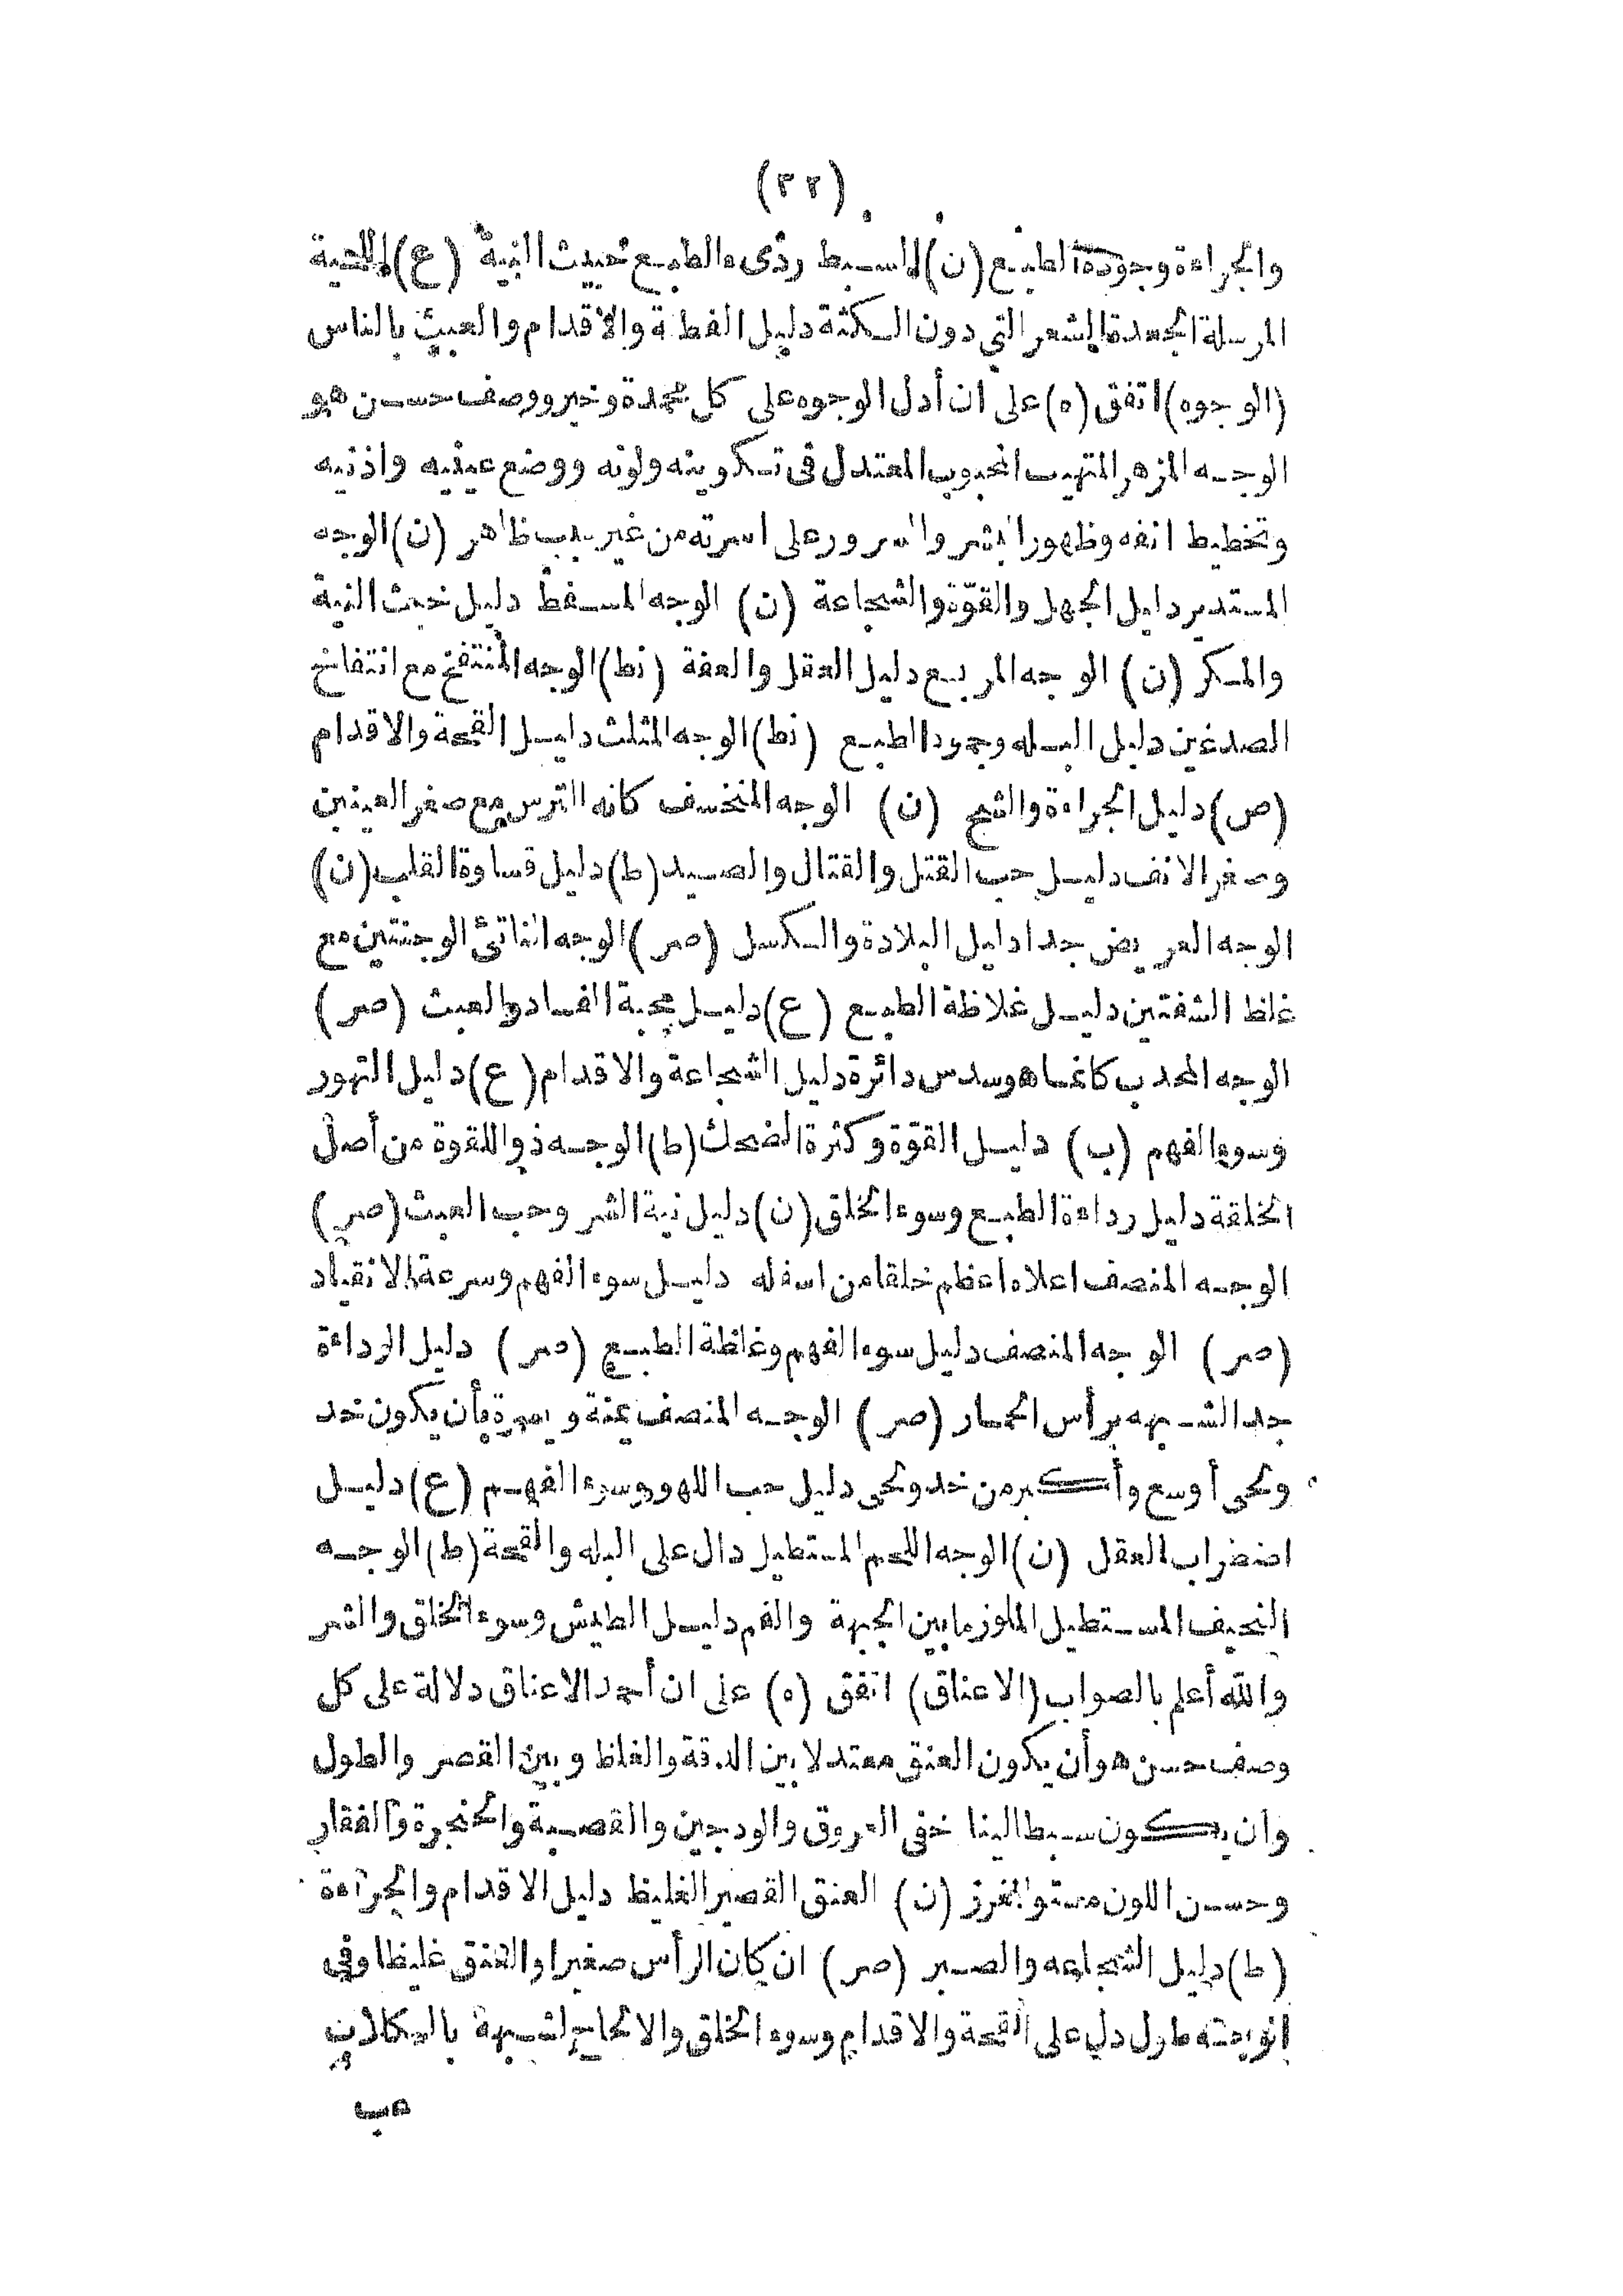 (٣٢)
والجراءة وجودة الطبع (ن) السبط ردىء الطبع خبيث النية (ع) اللحية
المرسلة الجعدة الشعر التي دون الكثة دليل الفطنة والاقدام والعبث بالناس
(الوجوه) اتفق (ه) على ان أدل الوجوه على كل محمدة وخير ووصف حسن هو
الوجه المزهر المتهيب المحبوب المعتدل فى تكوينه ولونه ووضع عينيه واذنيه
وتخطيط انفه وظهور البشر والسرور على اسرته من غير سبب ظاهر (ن) الوجه
المستدير دليل الجهل والقوّة والشجاعة (ن) الوجه المسفط دليل خبث النية
والمكر (ن) الوجه المربع دليل العقل والعفة (نط) الوجه المنتفخ مع انتفاخ
الصدغين دليل البله وجمود الطبع (نط) الوجه المثلث دليل القحة والاقدام
(ص) دليل الجراءة والشح (ن) الوجه المنخسف كانه الترس مع صغر العينين
وصغر الانف دليل حب القتل والقتال والصيد (ط) دليل قساوة القلب (ن)
الوجه العريض جدا دليل البلادة والكسل (صر) الوجه الناتئ الوجنتين مع
غلظ الشفتين دليل غلاظة الطبع (ع) دليل محبة الفساد والعبث (صر)
الوجه المحدب كانما هو سدس دائرة دليل الشجاعة والاقدام (ع) دليل التهور
وسوء الفهم (ب) دليل القوّة وكثرة الضحك (ط) الوجه ذو اللقوة من أصل
الخلقة دليل رداءة الطبع وسوء الخلق (ن) دليل نية الشر وحب العبث (صر)
الوجه المنصف اعلاه اعظم خلقا من اسفله دليل سوء الفهم وسرعة الانقياد
(صر) الوجه المنصف دليل سوء الفهم وغلظة الطبع (صر) دليل الرداءة
جدا الشبهه برأس الحمار (صر) الوجه المنصف يمنة ويسرة بأن يكون خد
ولحى أوسع وأكبر من خد ولحى دليل حب اللهو وسوء الفهم (ع) دليل
اضضراب العقل (ن) الوجه اللحيم المستطيل دال على البله والقحة (ط) الوجه
النحيف المستطيل الملوز ما بين الجبهة والفم دليل الطيش وسوء الخلق والشر
والله أعلم بالصواب (الاعناق) اتفق (ه) على ان أحمد الاعناق دلالة على كل
وصف حسن هو أن يكون العنق معتدلا بين الدقة والغلظ وبين القصر والطول
وان يكون سبطا لينا خفى العروق والودجين والقصبة والحنجرة والفقار
وحسن اللون مستو المغرز (ن) العنق القصير الغليظ دليل الاقدام والجراءة
(ط) دليل الشجاعه والصبر (صر) ان كان الرأس صغيرا والعنق غليظا وفى
طول دل على القحة والاقدام وسوء الخلق والالحاح لشبهه بالكلاب